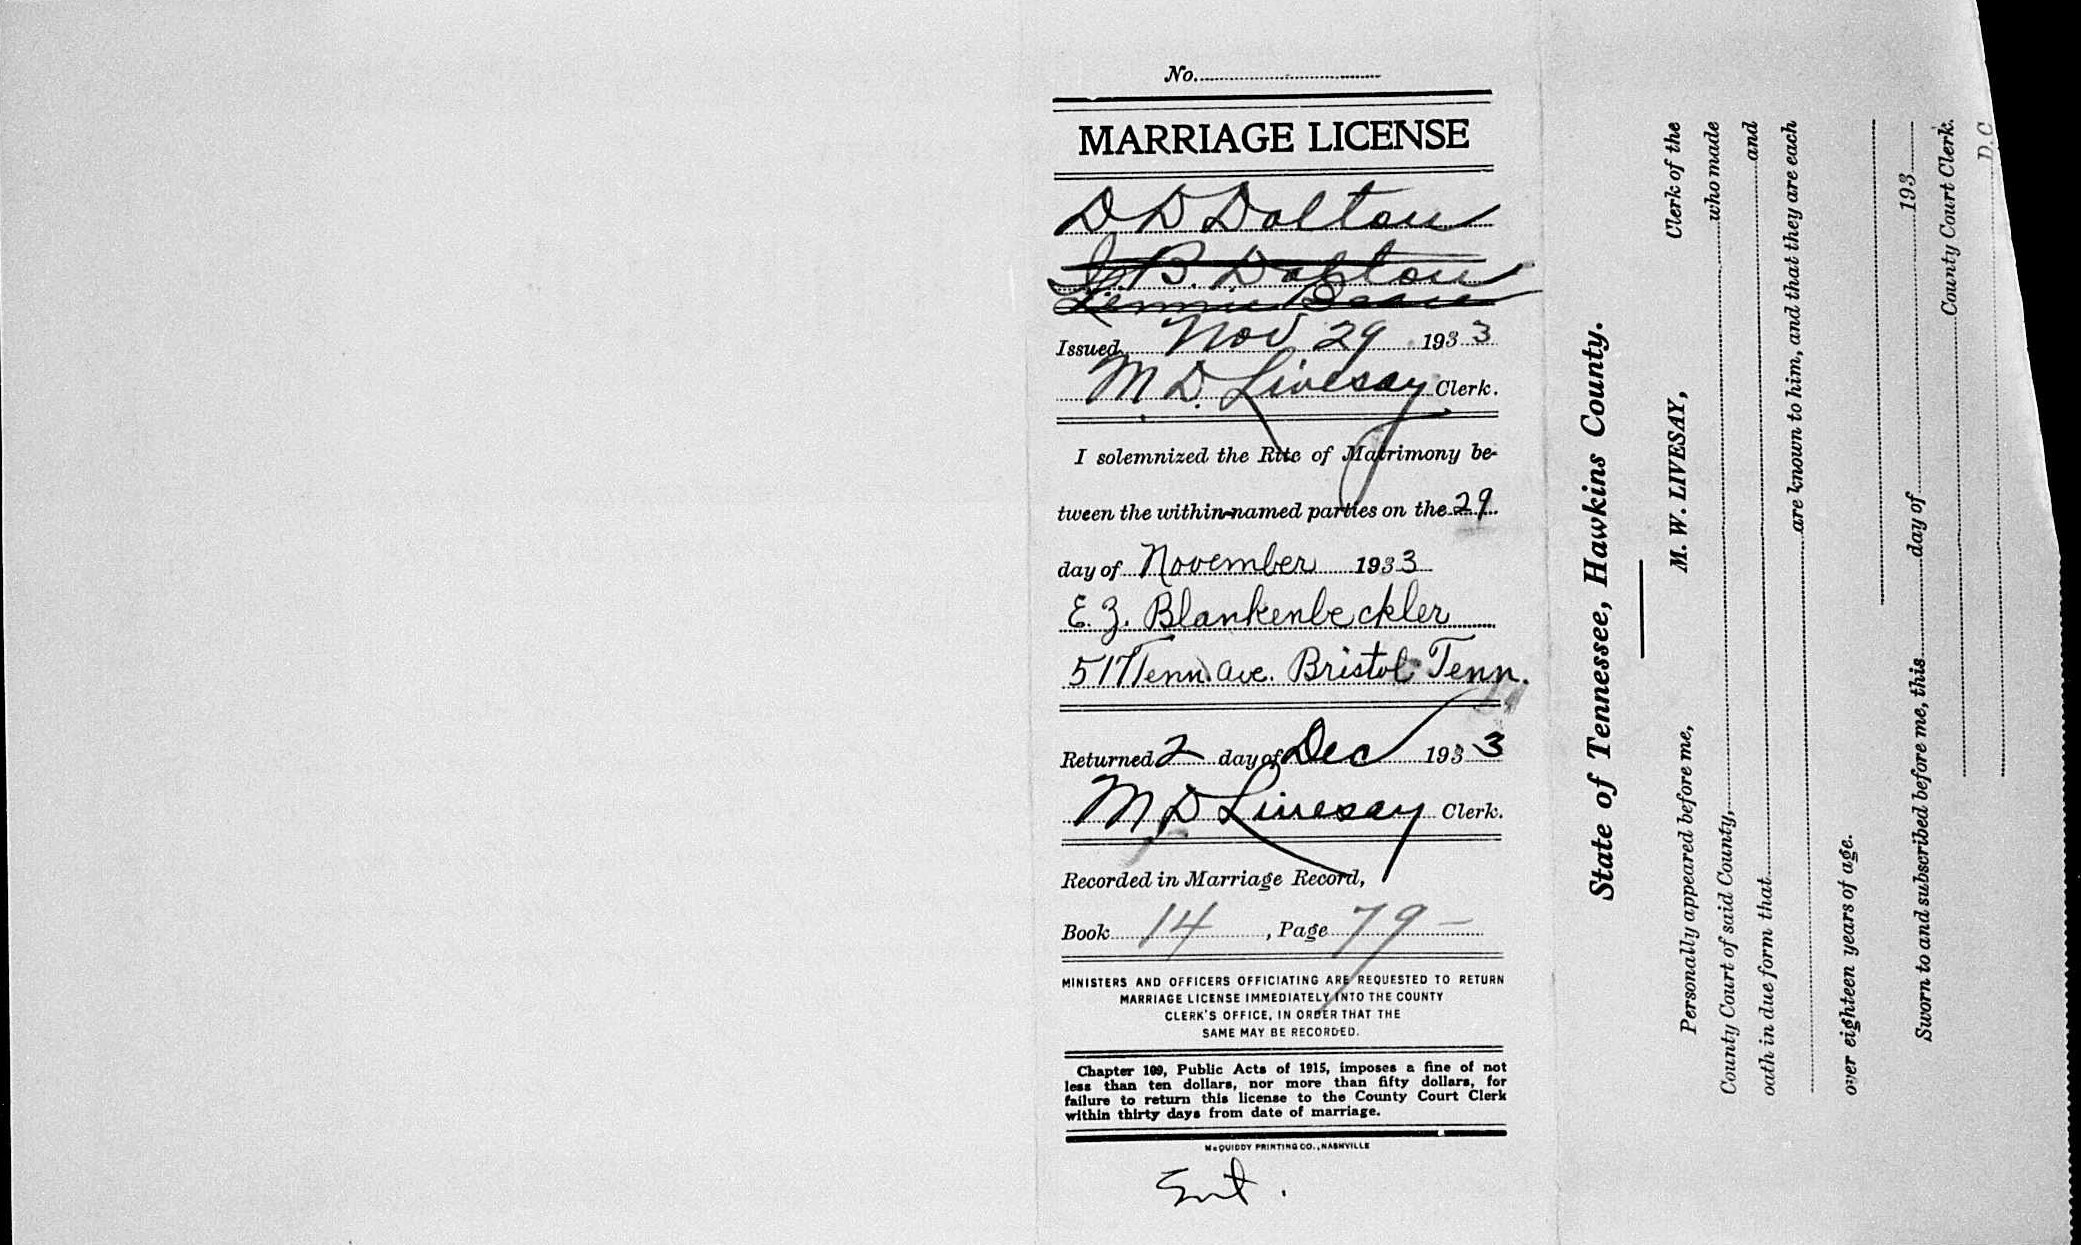 No.
MARRIAGE LICENSE
D D Dalton
B. Dalton
Bean
Issued Nov 29 1933
M. D. Livesay Clerk.
I solemnized the Rite of Matrimony be-
tween the within-named parties on the 29
day of November 1933
E. Z. Blankenbeckler
517 Tenn. Ave. Bristol Tenn.
Returned 2 day of Dec 1933
M D Livesay Clerk.
Recorded in Marriage Record,
Book 14, Page 79 -
MINISTERS AND OFFICERS OFFICIATING ARE REQUESTED TO RETURN
MARRIAGE LICENSE IMMEDIATELY INTO THE COUNTY
CLERK'S OFFICE, IN ORDER THAT THE
SAME MAY BE RECORDED.
Chapter 109, Public Acts of 1915, imposes a fine of not
less than ten dollars, nor more than fifty dollars, for
failure to return this license to the County Court Clerk
within thirty days from date of marriage.
McQUIDDY PRINTING CO., NASHVILLE
Ent.
State of Tennessee, Hawkins County.
Personally appeared before me, M. W. LIVESAY, Clerk of the
County Court of said County, who made
oath in due form that and
are known to him, and that they are each
over eighteen years of age.
Sworn to and subscribed before me, this day of 193
County Court Clerk.
D. C